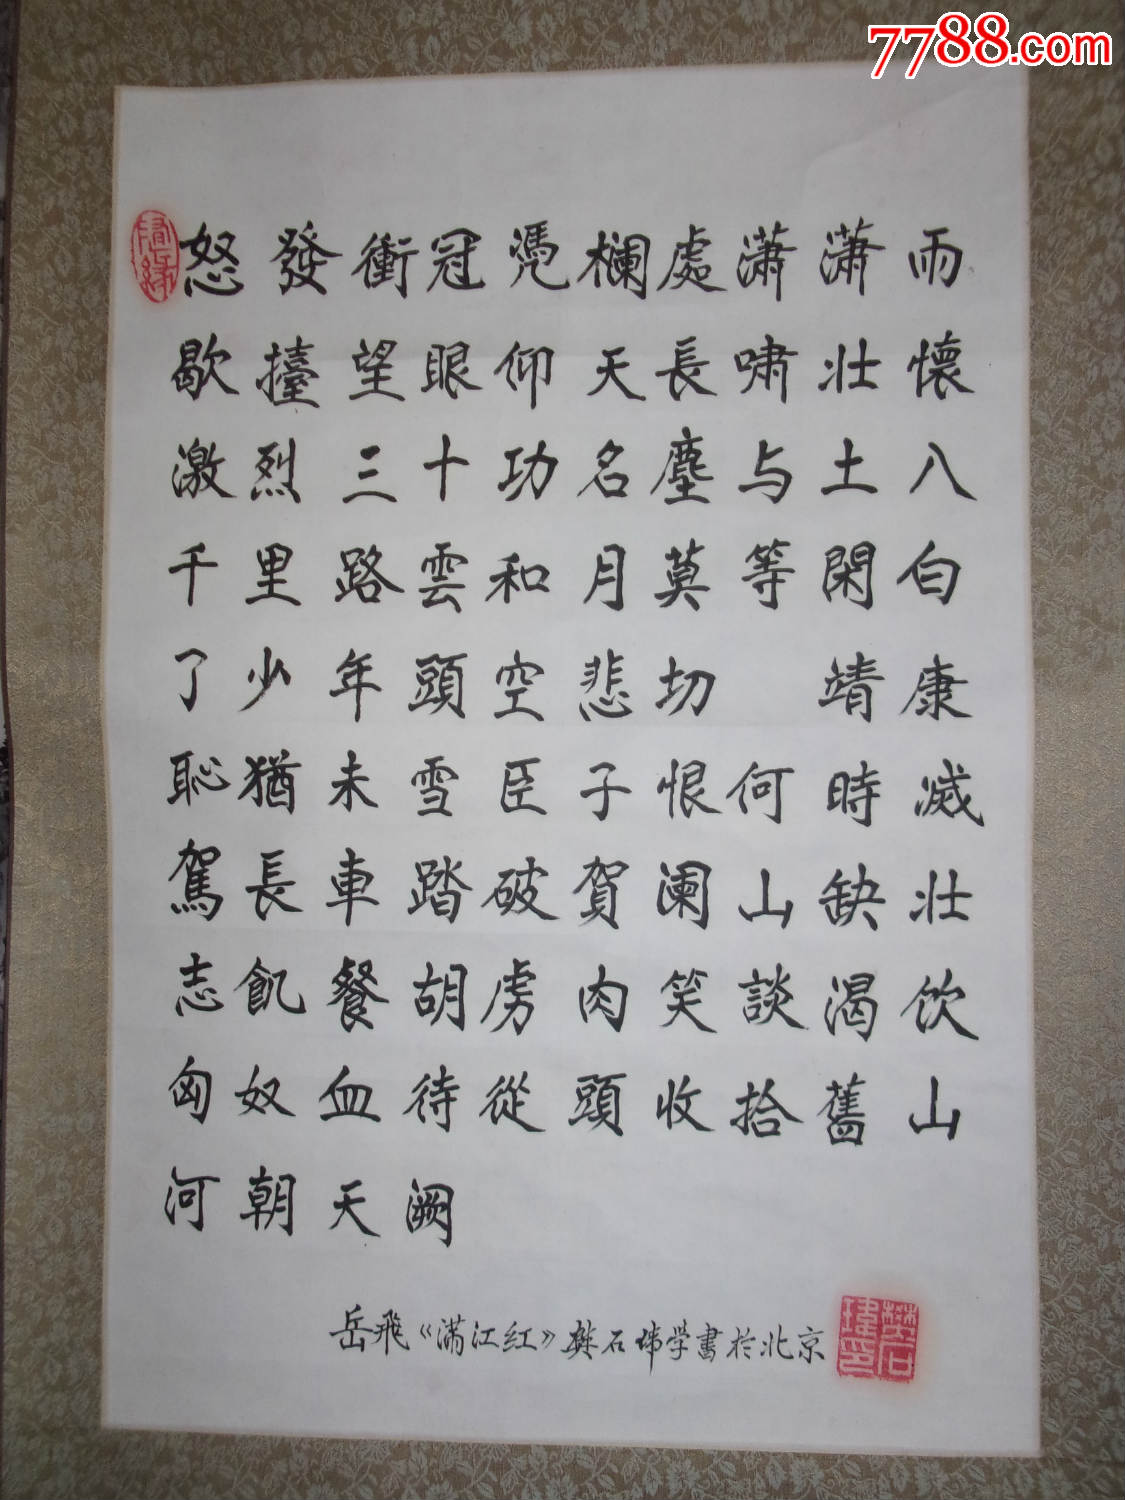 7788.com
怒發衝冠憑欄處潇潇雨
歇擡望眼仰天長啸壮懷
激烈三十功名塵与土八
千里路雲和月莫等閑白
了少年頭空悲切 靖康
恥猶未雪臣子恨何時滅
駕長車踏破賀阑山缺壮
志飢餐胡虏肉笑談渴饮
匈奴血待從頭收拾舊山
河朝天阙
岳飛《满江红》樊石玮学書於北京
樊石瑋印